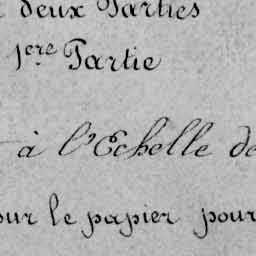 deux Parties
1ère Partie
à l'Echelle de
sur le papier pour